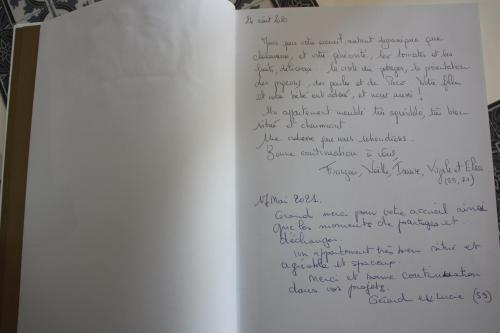 24 août 2020
Merci pour votre accueil, autant dynamique que
chaleureux, et votre générosité, les tomates et les
fruits, délicieux. la visite du potager, la présentation
des pigeons, des poules et de Paco. Notre fille
et notre bébé ont adoré, et nous aussi !
Un appartement meublé très agréable, très bien
situé et charmant
Une adresse que nous retiendrons.
Bonne continuation à vous
François, et Elsa.
17 Mai 2021.
Grand merci pour votre accueil ainsi
que les moments de partages et
d'échanges.
un appartement très bien situé et
agréable et spacieux.
Merci et bonne continuation
dans vos projets.
Gérard et Lucie (59)